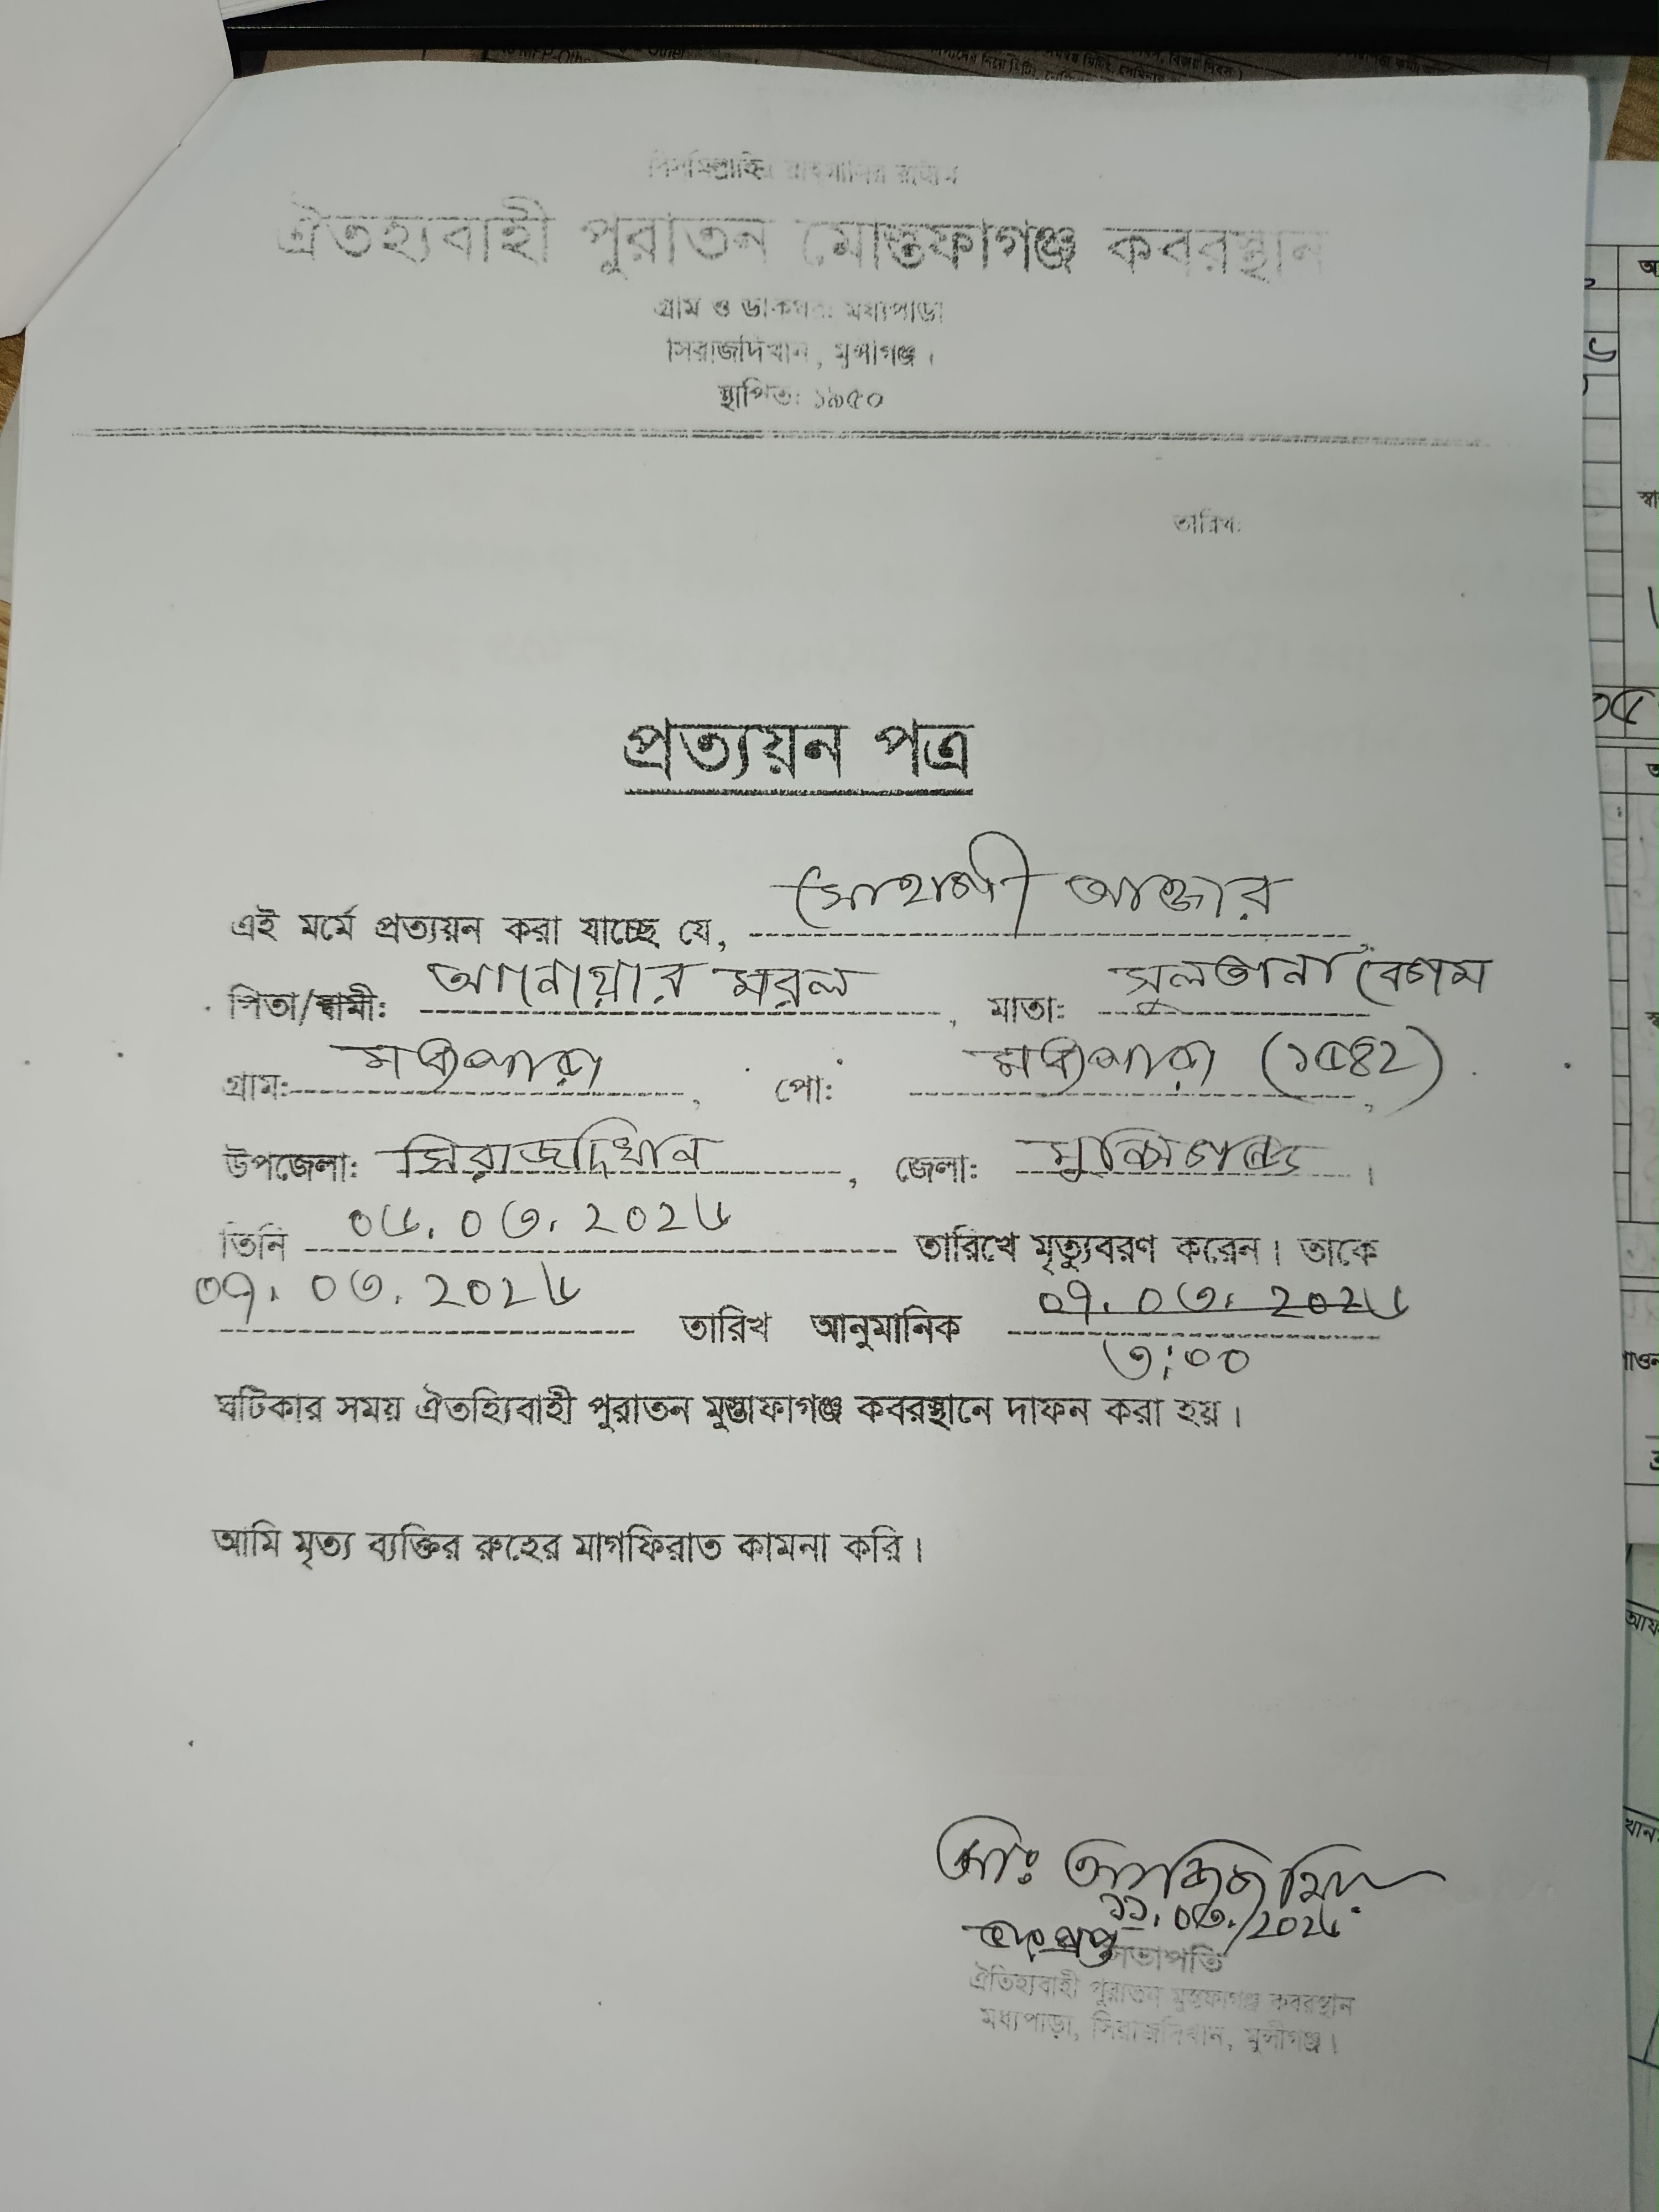 বিসমিল্লাহির রাহমানির রাহীম
ঐতহ্যবাহী পুরাতন মোস্তফাগঞ্জ কবরস্থান
গ্রাম ও ডাকঘর: মধ্যপাড়া
সিরাজদিখান, মুন্সীগঞ্জ।
স্থাপিত: ১৯৫০
তারিখ:
প্রত্যয়ন পত্র
এই মর্মে প্রত্যয়ন করা যাচ্ছে যে, সোহানী আক্তার
পিতা/স্বামী: আনোয়ার মরল, মাতা: সুলতানা বেগম
গ্রাম: মধ্যপারা, পো: মধ্যপারা (১৫৪২),
উপজেলা: সিরাজদিখান, জেলা: মুন্সিগঞ্জ।
তিনি ০৬.০৩.২০২৬ তারিখে মৃত্যুবরণ করেন। তাকে
০৭.০৩.২০২৬ তারিখ আনুমানিক ০৭.০৩.২০২৬
৩:০০
ঘটিকার সময় ঐতহ্যিবাহী পুরাতন মুস্তাফাগঞ্জ কবরস্থানে দাফন করা হয়।
আমি মৃত্য ব্যক্তির রুহের মাগফিরাত কামনা করি।
মোঃ আজিজ মিয়া
১১.০৩.২০২৬
সভাপতি
ঐতিহ্যবাহী পুরাতন মুস্তফাগঞ্জ কবরস্থান
মধ্যপাড়া, সিরাজদিখান, মুন্সীগঞ্জ।